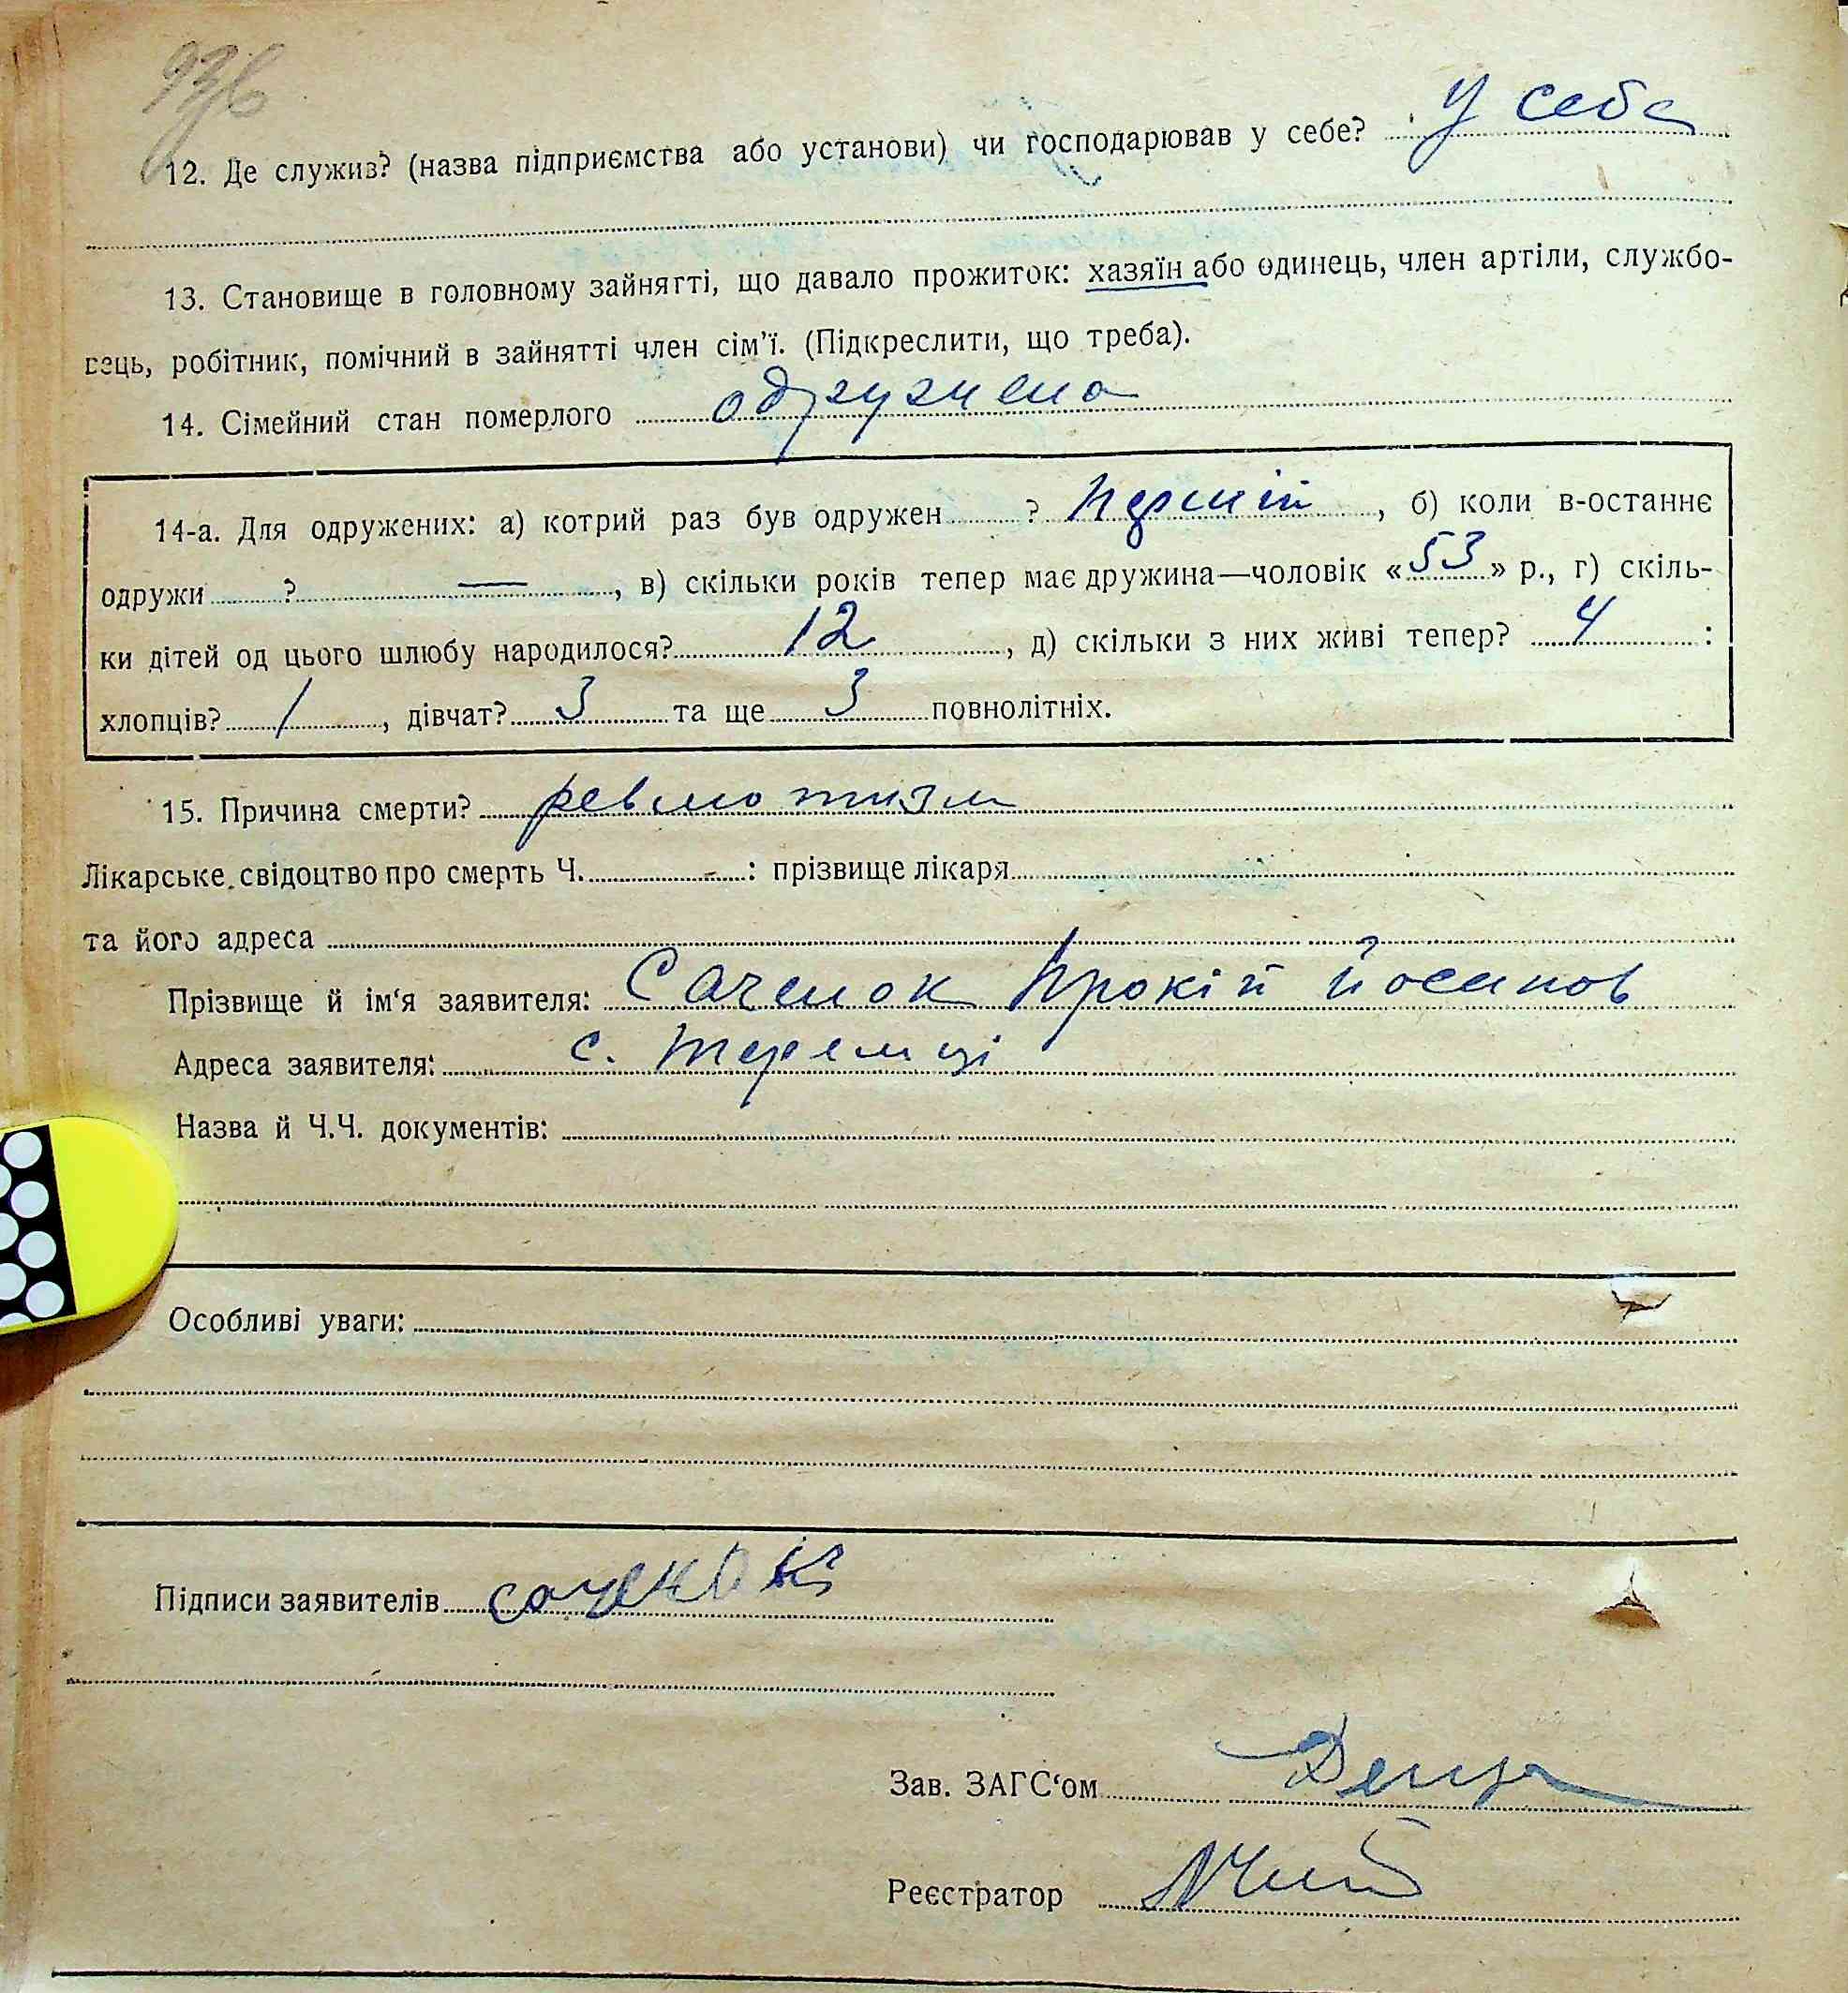 12. Де служив? (назва підприємства або установи) чи господарював у себе? У себе
13. Становище в головному зайнятті, що давало прожиток: хазяїн або одинець, член артіли, службо-
вець, робітник, помічний в зайнятті член сім'ї. (Підкреслити, що треба).
14. Сімейний стан померлого одружена
14-а. Для одружених: а) котрий раз був одружен ? перший, б) коли в-останнє
одружи ? —, в) скільки років тепер має дружина—чоловік «53» р., г) скіль-
ки дітей од цього шлюбу народилося? 12, д) скільки з них живі тепер? 4 :
хлопців? 1, дівчат? 3 та ще 3 повнолітніх.
15. Причина смерти? ревмотизм
Лікарське свідоцтво про смерть Ч. : прізвище лікаря
та його адреса
Прізвище й ім'я заявителя: Саченок Прокій Йосипов
Адреса заявителя: с. Теремці
Назва й Ч.Ч. документів:
Особливі уваги:
Підписи заявителів
Зав. ЗАГС'ом
Реєстратор